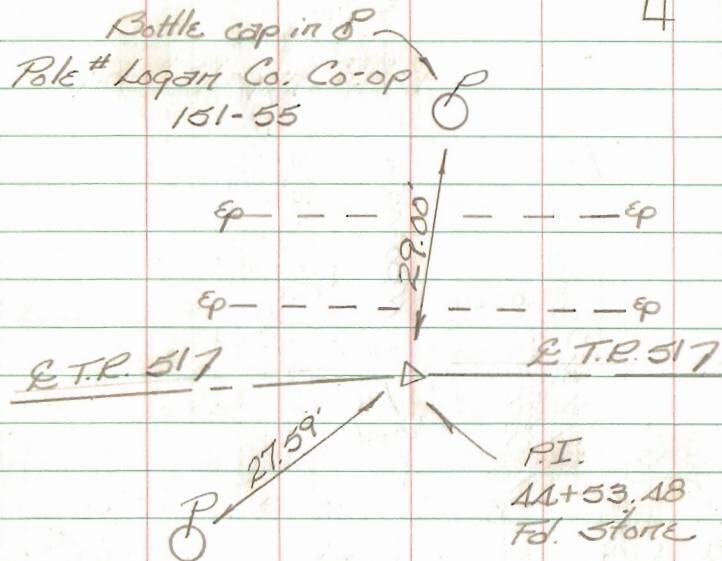 4
Bottle cap in P
Pole # Logan Co. Co-op
151-55
P
Ep Ep
29.00'
Ep Ep
℄ T.R. 517 ℄ T.R. 517
27.59'
P.I.
44+53.48
Fd. Stone
P